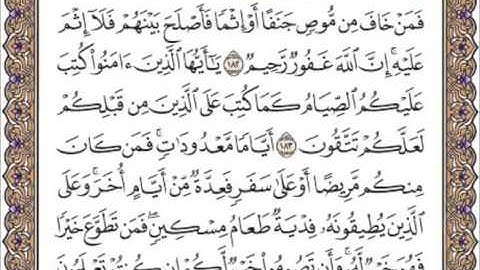 فَمَنْ خَافَ مِن مُّوصٍ جَنَفًا أَوْ إِثْمًا فَأَصْلَحَ بَيْنَهُمْ فَلَآ إِثْمَ
عَلَيْهِ ۚ إِنَّ ٱللَّهَ غَفُورٌ رَّحِيمٌ ١٨٢ يَـٰٓأَيُّهَا ٱلَّذِينَ ءَامَنُوا۟ كُتِبَ
عَلَيْكُمُ ٱلصِّيَامُ كَمَا كُتِبَ عَلَى ٱلَّذِينَ مِن قَبْلِكُمْ
لَعَلَّكُمْ تَتَّقُونَ ١٨٣ أَيَّامًا مَّعْدُودَٰتٍ ۚ فَمَن كَانَ
مِنكُم مَّرِيضًا أَوْ عَلَىٰ سَفَرٍ فَعِدَّةٌ مِّنْ أَيَّامٍ أُخَرَ ۚ وَعَلَى
ٱلَّذِينَ يُطِيقُونَهُۥ فِدْيَةٌ طَعَامُ مِسْكِينٍ ۖ فَمَن تَطَوَّعَ خَيْرًا
فَهُوَ خَيْرٌ لَّهُۥ ۚ وَأَن تَصُومُوا۟ خَيْرٌ لَّكُمْ ۖ إِن كُنتُمْ تَعْلَمُونَ